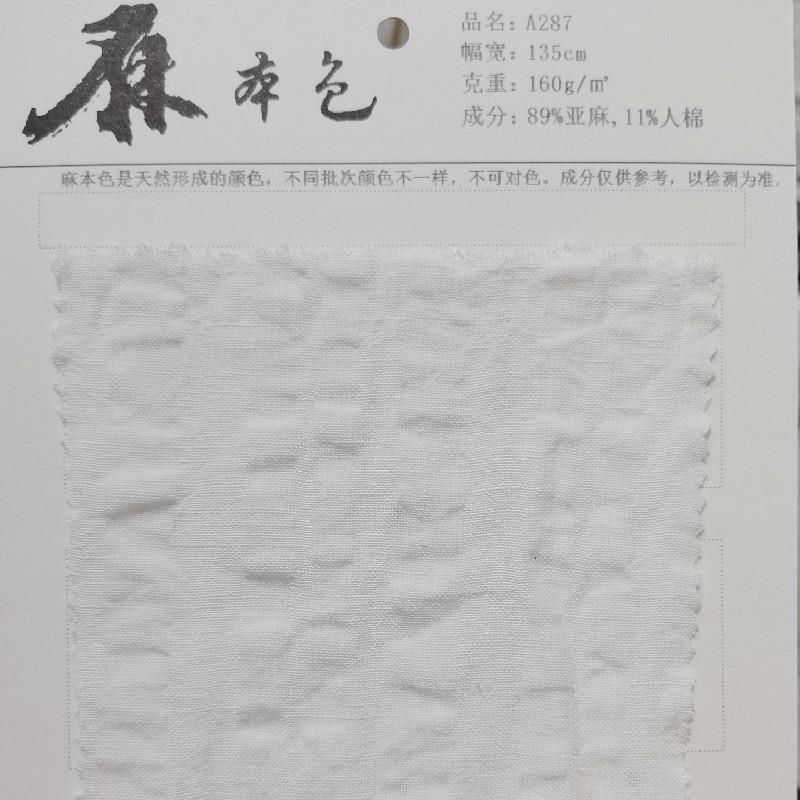 麻本色
品名: A287
幅宽: 135cm
克重: 160g/㎡
成分: 89%亚麻,11%人棉
麻本色是天然形成的颜色，不同批次颜色不一样，不可对色。成分仅供参考，以检测为准.